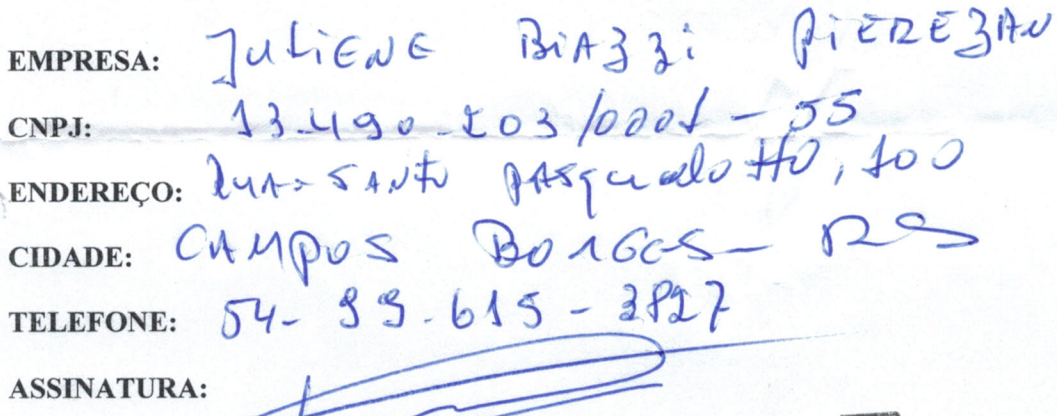 EMPRESA: JULIENE BIAZZI PIEREZAN
CNPJ: 13.490.203/0001-55
ENDEREÇO: RUA: SANTO PASqualoTTO, 100
CIDADE: CAMPOS BORGES - RS
TELEFONE: 54-99.619-3827
ASSINATURA: